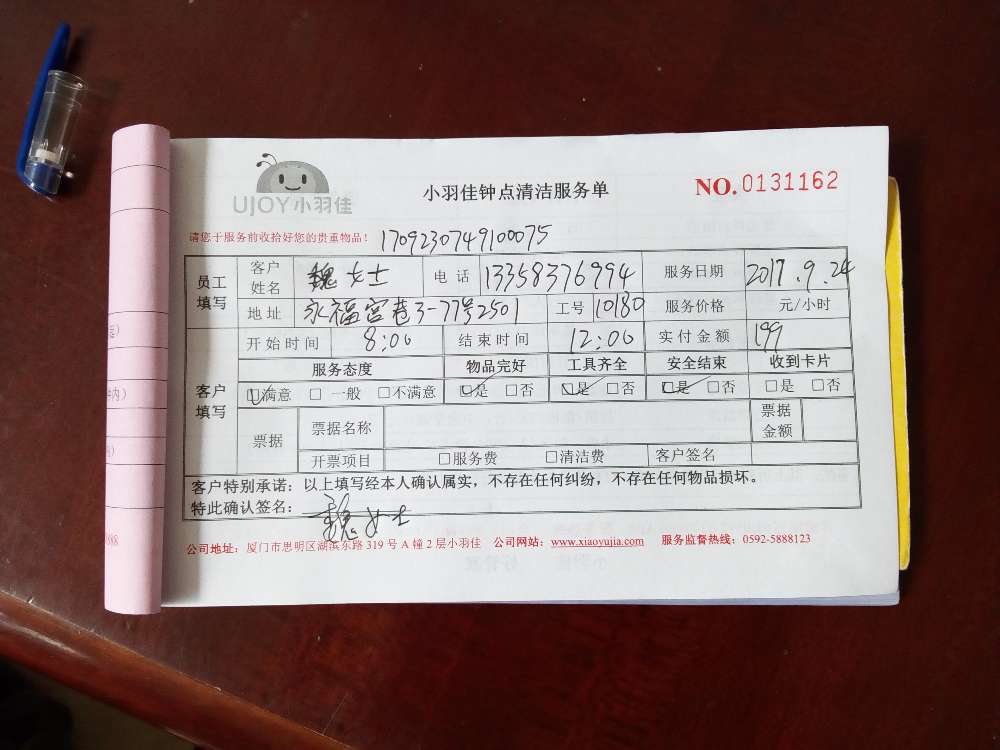 UJOY小羽佳
小羽佳钟点清洁服务单
NO.0131162
请您于服务前收拾好您的贵重物品！ 1709230749100075
员工填写 客户姓名 魏女士 电话 13358376994 服务日期 2017.9.24
地址 永福宫巷3-77号2501 工号 10180 服务价格 元/小时
客户填写 开始时间 8:00 结束时间 12:00 实付金额 199
服务态度 物品完好 工具齐全 安全结束 收到卡片
☑满意 □一般 □不满意 ☑是 □否 ☑是 □否 ☑是 □否 □是 □否
票据 票据名称 票据金额
开票项目 □服务费 □清洁费 客户签名
客户特别承诺：以上填写经本人确认属实，不存在任何纠纷，不存在任何物品损坏。
特此确认签名： 魏女士
公司地址：厦门市思明区湖滨东路319号A幢2层小羽佳 公司网站：www.xiaoyujia.com 服务监督热线：0592-5888123